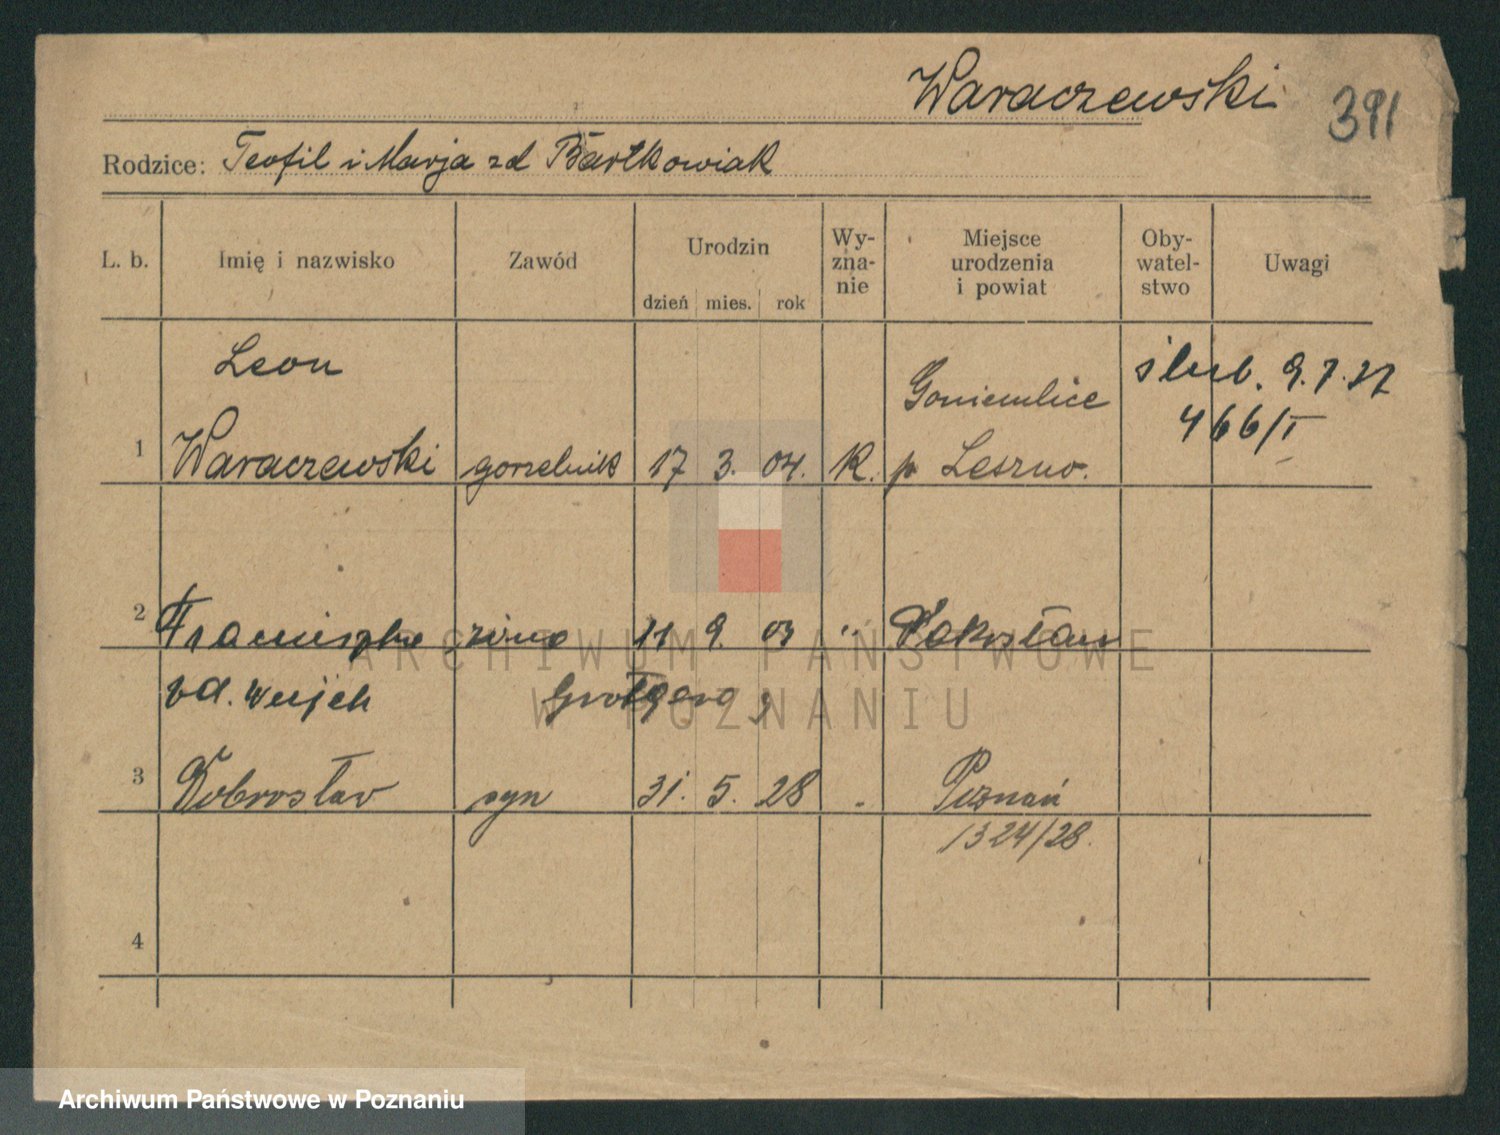 Waraczewski 391
Rodzice: Teofil i Marja zd Bartkowiak
L. b. Imię i nazwisko Zawód Urodzin dzień mies. rok Wy-zna-nie Miejsce urodzenia i powiat Oby-watel-stwo Uwagi
Leon
Goniembice ślub. 9.7.27
466/I
1 Waraczewski gorzelnik 17 3. 04. K. p Leszno.
2 Franciszka żona 11 9. 03 " Pakosław
ARCHIWUM PAŃSTWOWE
zd. Wujek
W POZNANIU
3 Dobrosław syn 31. 5. 28 " Poznań
1324/28.
4
Archiwum Państwowe w Poznaniu